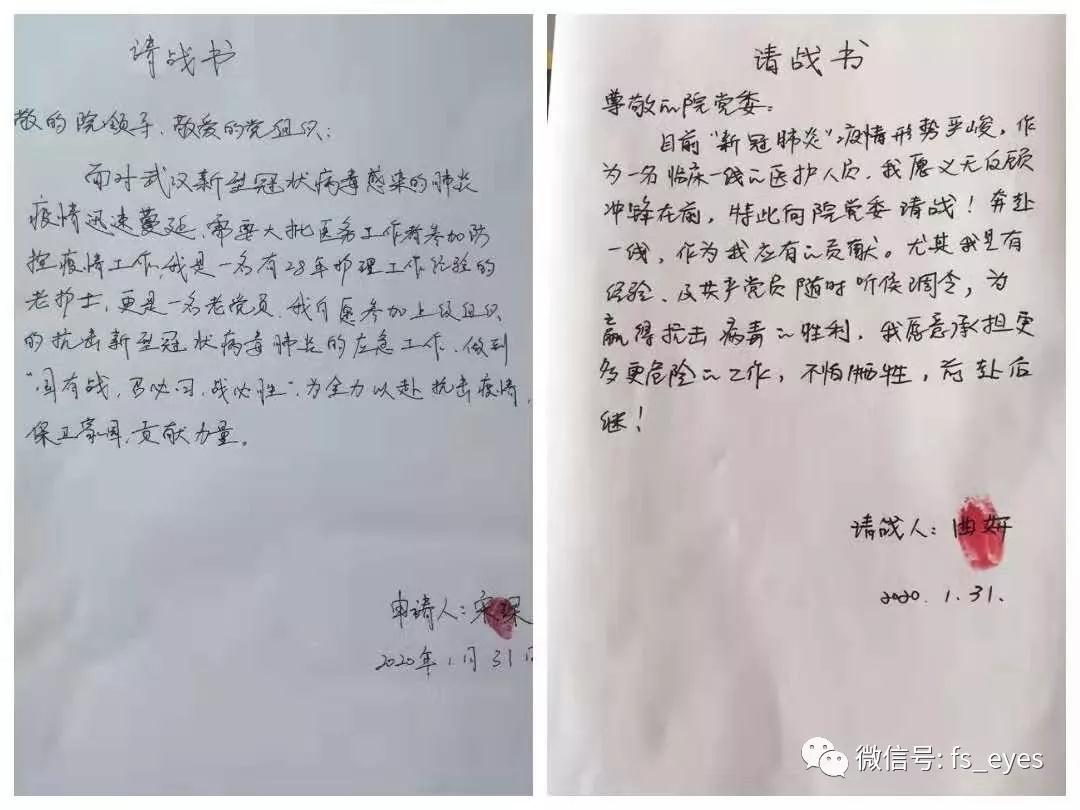 请战书
敬的院领导、敬爱的党组织：
面对武汉新型冠状病毒感染的肺炎
疫情迅速蔓延,需要大批医务工作者参加防
控疫情工作,我是一名有28年护理工作经验的
老护士,更是一名老党员,我自愿参加上级组织
的抗击新型冠状病毒肺炎的应急工作,做到
“若有战,召必回,战必胜”.为全力以赴抗击疫情,
保卫家园,贡献力量。
申请人：宋
2020年1月31日
请战书
尊敬的院党委：
目前“新冠肺炎”疫情形势严峻，作
为一名临床一线的医护人员，我愿义无反顾
冲锋在前，特此向院党委请战！奔赴
一线，作为我应有的贡献。尤其我是有
经验、及共产党员随时听候调令，为
赢得抗击病毒的胜利，我愿意承担更
多更危险的工作，不怕牺牲，前赴后
继！
请战人：曲妍
2020.1.31.
微信号: fs_eyes